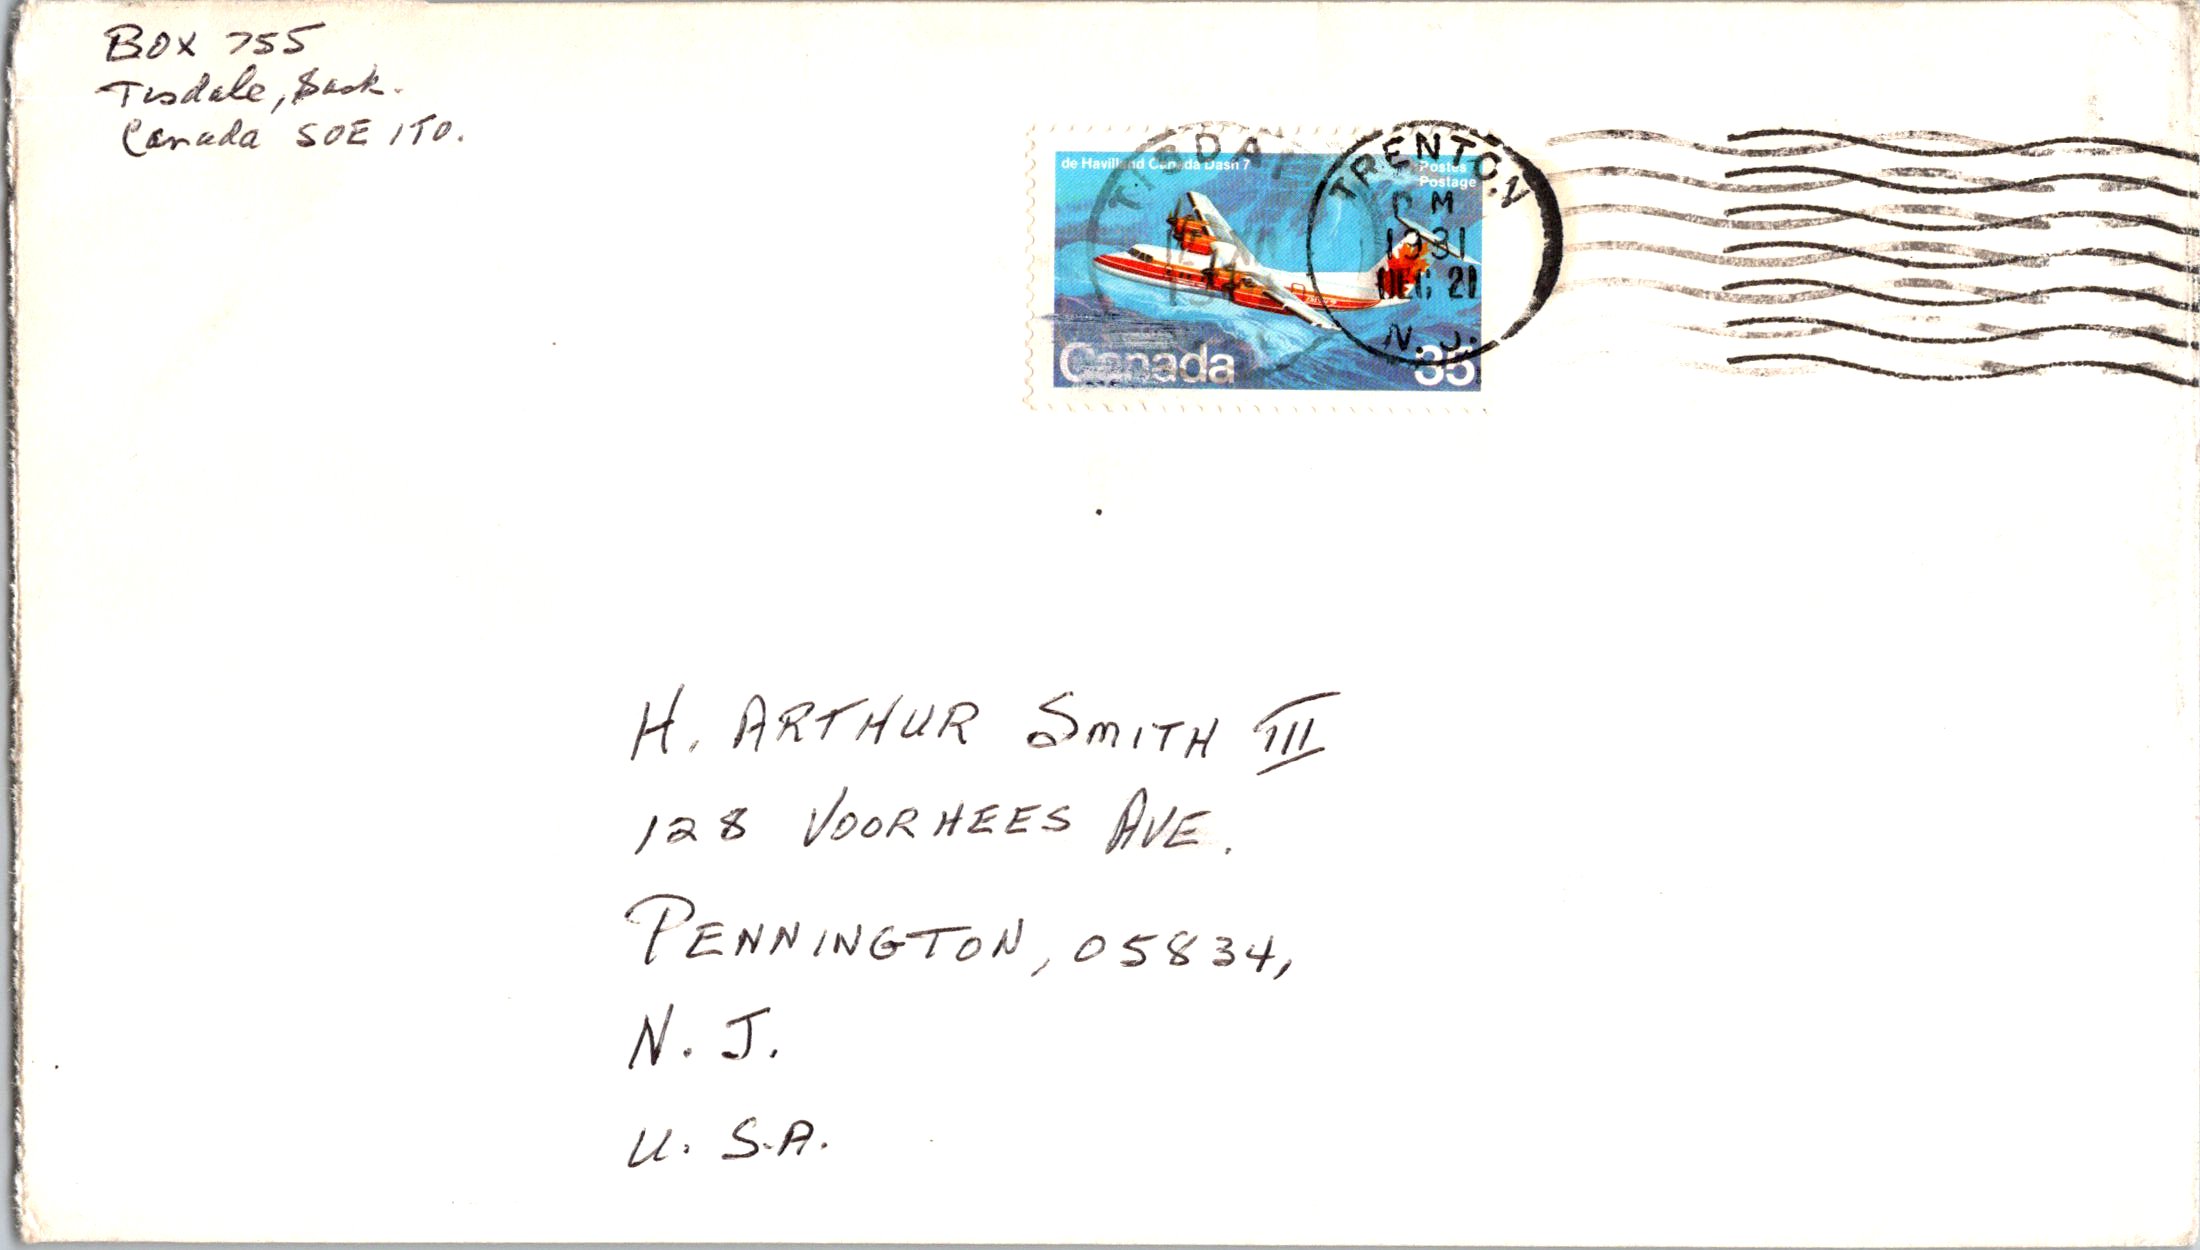 Box 755
Tisdale, Sask.
Canada S0E 1T0.
de Havilland Canada Dash 7
Postes
Postage
Canada
35
TRENTON
PM
1981
DEC 21
N.J.
H. ARTHUR SMITH III
128 VOORHEES AVE.
PENNINGTON, 05834,
N. J.
U. S.A.